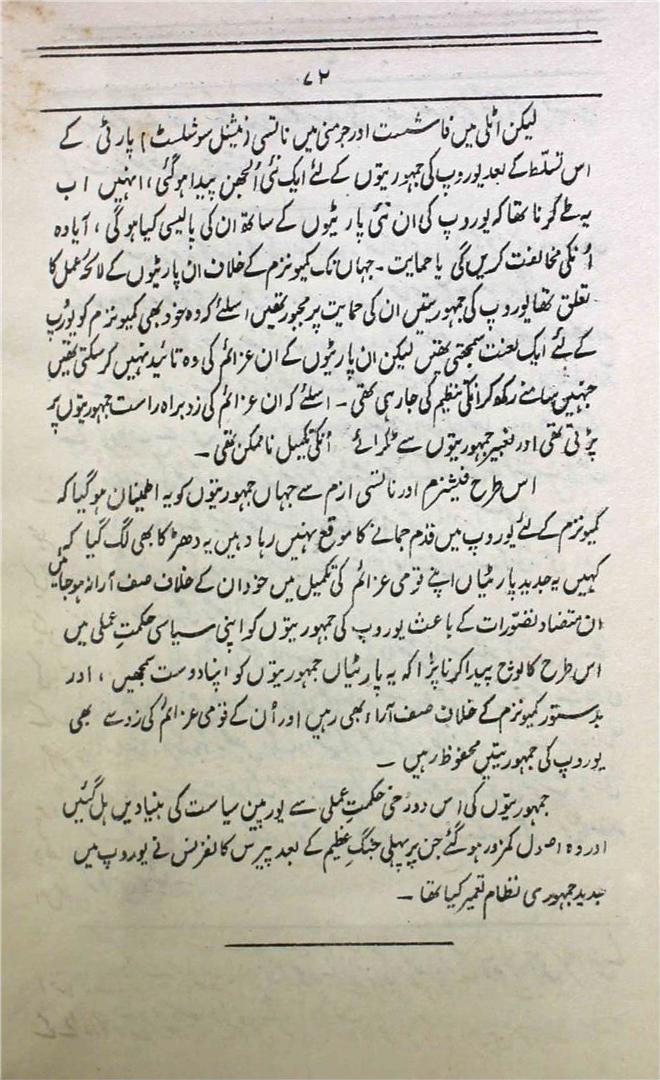 ۷۲
لیکن اٹلی میں فاشسٹ اور جرمنی میں ناتسی (نیشنل سوشلسٹ) پارٹی کے
اس تسلّط کے بعد یوروپ کی جمہوریتوں کے لئے ایک نئی اُلجھن پیدا ہو گئی، انہیں اب
یہ طے کرنا تھا کہ یوروپ کی ان نئی پارٹیوں کے ساتھ ان کی پالیسی کیا ہو گی، آیا وہ
اُنکی مخالفت کریں گی یا حمایت۔ جہاں تک کمیونزم کے خلاف ان پارٹیوں کے لائحۂ عمل کا
تعلق تھا یوروپ کی جمہوریتیں ان کی حمایت پر مجبور تھیں اسلئے کہ وہ خود بھی کمیونزم کو یورُپ
کے لئے ایک لعنت سمجھتی تھیں لیکن ان پارٹیوں کے ان عزائم کی وہ تائید نہیں کر سکتی تھیں
جنہیں سامنے رکھ کر انکی تنظیم کی جا رہی تھی۔ اسلئے کہ ان عزائم کی زد براہ راست جمہوریتوں پر
پڑتی تھی اور بغیر جمہوریتوں سے ٹکرائے اُنکی تکمیل ناممکن تھی۔
اس طرح فیشنزم اور ناتسی ازم سے جہاں جمہوریتوں کو یہ اطمینان ہو گیا کہ
کمیونزم کے لئے یوروپ میں قدم جمانے کا موقع نہیں رہا وہیں یہ دھڑکا بھی لگ گیا کہ
کہیں یہ جدید پارٹیاں اپنے قومی عزائم کی تکمیل میں خود ان کے خلاف صف آرا نہ ہو جائیں
ان متضاد تصوّرات کے باعث یوروپ کی جمہوریتوں کو اپنی سیاسی حکمتِ عملی میں
اس طرح کا لوچ پیدا کرنا پڑا کہ یہ پارٹیاں جمہوریتوں کو اپنا دوست سمجھیں، اور
بدستور کمیونزم کے خلاف صف آراء بھی رہیں اور اُن کے قومی عزائم کی زد سے بھی
یوروپ کی جمہوریتیں محفوظ رہیں۔
جمہوریتوں کی اس دو رخی حکمتِ عملی سے یورپین سیاست کی بنیادیں ہل گئیں
اور وہ اصول کمزور ہو گئے جن پر پہلی جنگِ عظیم کے بعد پیرس کانفرنس نے یوروپ میں
جدید جمہوری نظام تعمیر کیا تھا۔